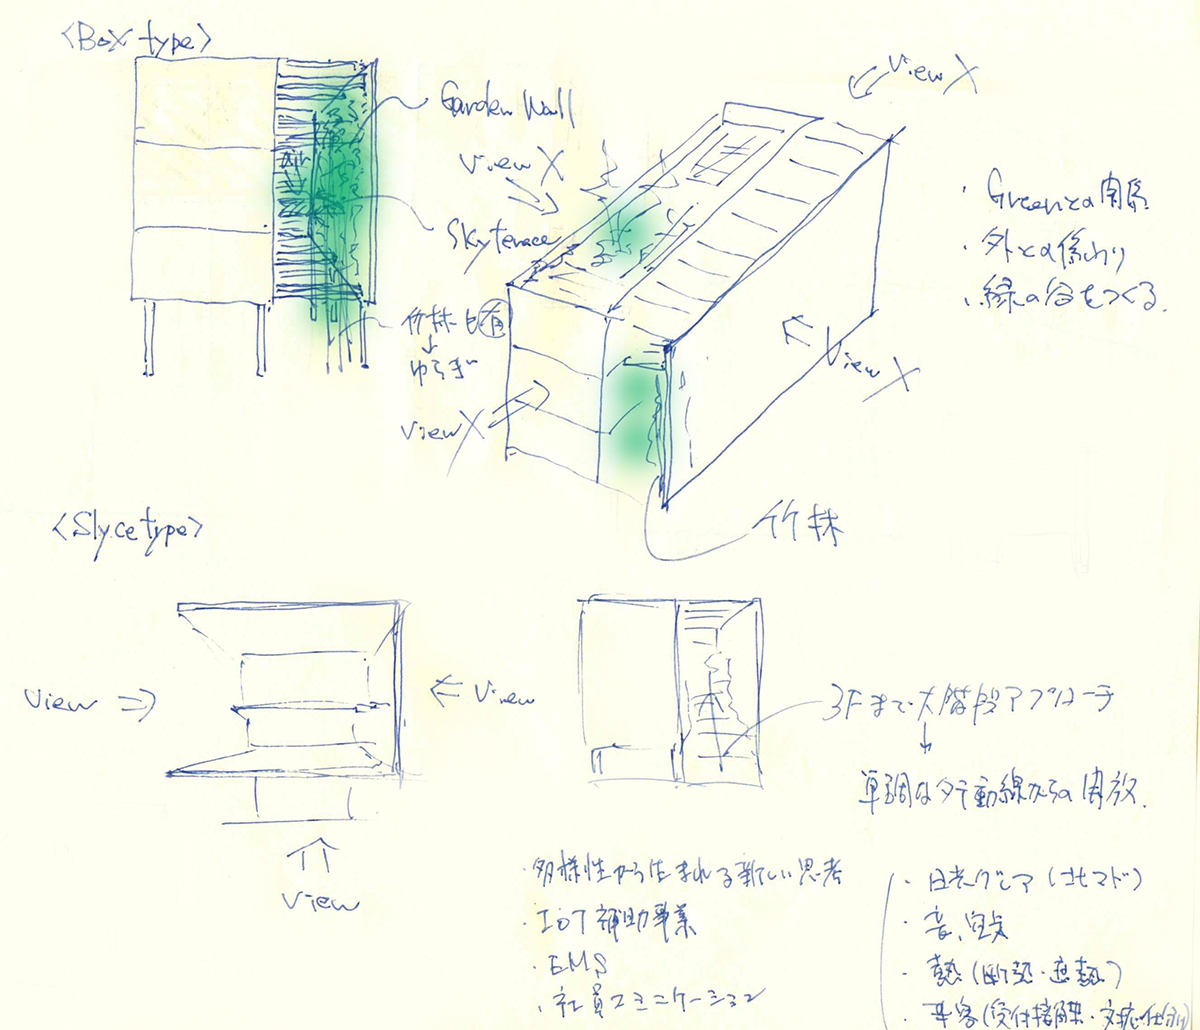 <Box type>
Garden Wall
air
View X
Skyterrace
竹林も有
↓
ゆらぎ
View X
View X
View X
竹林
・Greenとの関係
・外との係わり
・緑の谷をつくる.
<Slyce type>
View ⇒
⇐ View
View
3Fまで大階段アプローチ
↓
単調なタテ動線からの開放.
・多様性から生まれる新しい思考
・IoT 補助事業
・EMS
・社員コミニケーション
・日光グレア (北マド)
・音、
・熱 (断熱・遮熱)
・来客 (受付